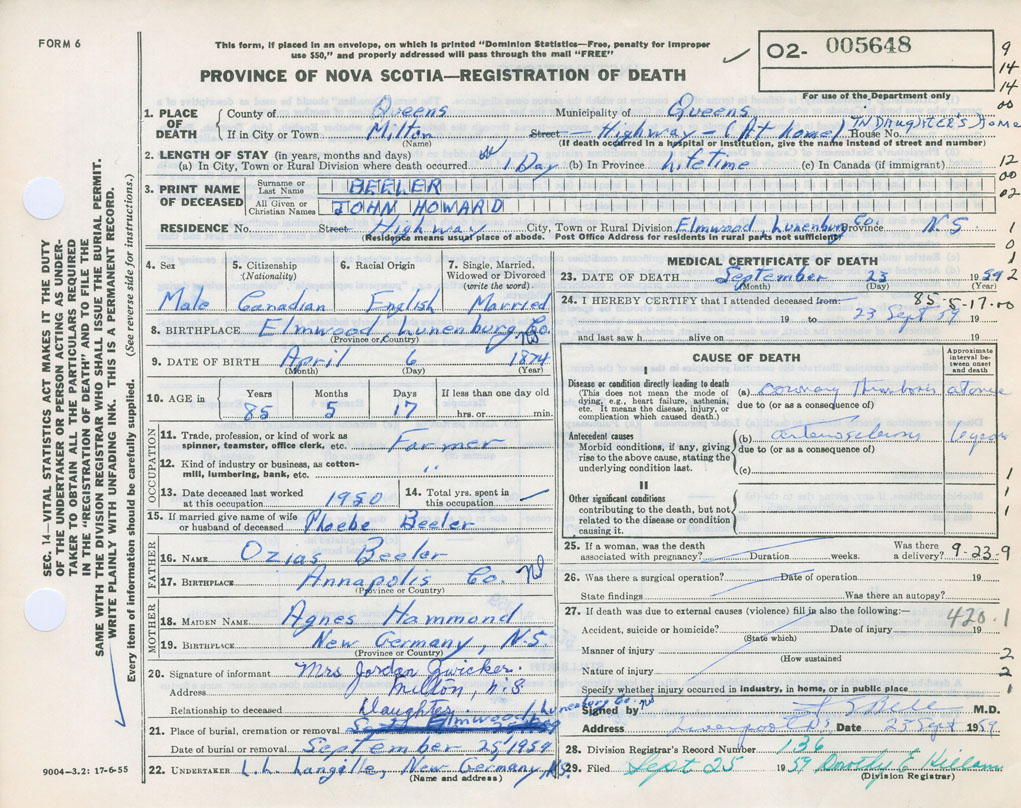 FORM 6
This form, if placed in an envelope, on which is printed "Dominion Statistics—Free, penalty for improper
use $50," and properly addressed will pass through the mail "FREE"
O2- 005648
For use of the Department only
PROVINCE OF NOVA SCOTIA—REGISTRATION OF DEATH
9
14
14
00
12
00
02
1
0
1
2
1. PLACE OF DEATH
County of Queens Municipality of Queens
If in City or Town Milton Street Highway - (At home) IN DAUGHTER'S Home House No.
(Name) (If death occurred in a hospital or institution, give the name instead of street and number)
2. LENGTH OF STAY (in years, months and days)
(a) In City, Town or Rural Division where death occurred 1 Day (b) In Province Lifetime (c) In Canada (if immigrant)
3. PRINT NAME OF DECEASED
Surname or Last Name BEELER
All Given or Christian Names JOHN HOWARD
RESIDENCE No. Street Highway City, Town or Rural Division Elmwood, Lunenburg Co. Province N.S.
(Residence means usual place of abode. Post Office Address for residents in rural parts not sufficient)
4. Sex 5. Citizenship (Nationality) 6. Racial Origin 7. Single, Married, Widowed or Divorced (write the word)
Male Canadian English Married
8. BIRTHPLACE Elmwood Lunenburg Co. NS
(Province or Country)
9. DATE OF BIRTH April 6 1874
(Month) (Day) (Year)
10. AGE in Years Months Days If less than one day old
85 5 17 hrs. or min.
OCCUPATION
11. Trade, profession, or kind of work as
spinner, teamster, office clerk, etc. Farmer
12. Kind of industry or business, as cotton-
mill, lumbering, bank, etc. "
13. Date deceased last worked
at this occupation 1950
14. Total yrs. spent in
this occupation —
15. If married give name of wife
or husband of deceased Phoebe Beeler
FATHER
16. NAME Ozias Beeler
17. BIRTHPLACE Annapolis Co. NS
(Province or Country)
MOTHER
18. MAIDEN NAME Agnes Hammond
19. BIRTHPLACE New Germany, N.S
(Province or Country)
20. Signature of informant Mrs Jordan Zwicker.
Address Milton, N.S
Relationship to deceased Daughter
21. Place of burial, cremation or removal Elmwood Lunenburg Co. NS
Date of burial or removal September 25 1959
22. UNDERTAKER L.L. Langille, New Germany, N.S.
(Name and address)
9004—3.2: 17-6-55
MEDICAL CERTIFICATE OF DEATH
23. DATE OF DEATH September 23 1959
(Month) (Day) (Year)
24. I HEREBY CERTIFY that I attended deceased from:—
85-5-17-00
19 to 23 Sept 59 19
and last saw h alive on 19
CAUSE OF DEATH
Approximate interval between onset and death
I
Disease or condition directly leading to death
(This does not mean the mode of
dying, e.g., heart failure, asthenia,
etc. It means the disease, injury, or
complication which caused death.)
(a) coronary thrombosis at once
due to (or as a consequence of)
Antecedent causes
Morbid conditions, if any, giving
rise to the above cause, stating the
underlying condition last.
(b) arteriosclerosis years
due to (or as a consequence of)
(c)
II
Other significant conditions
contributing to the death, but not
related to the disease or condition
causing it.
1
1
1
25. If a woman, was the death
associated with pregnancy? Duration weeks. Was there
a delivery? 9-23-9
26. Was there a surgical operation? Date of operation 19
State findings Was there an autopsy?
27. If death was due to external causes (violence) fill in also the following:—
420.1
Accident, suicide or homicide? Date of injury 19
(State which)
Manner of injury 2
(How sustained
Nature of injury 2
Specify whether injury occurred in industry, in home, or in public place 1
Signed by M.D.
Address Liverpool NS Date 23 Sept 1959
28. Division Registrar's Record Number 136
29. Filed Sept 25 1959 Dorothy E Killam
(Division Registrar)
SEC. 14—VITAL STATISTICS ACT MAKES IT THE DUTY
OF THE UNDERTAKER OR PERSON ACTING AS UNDER-
TAKER TO OBTAIN ALL THE PARTICULARS REQUIRED
IN THE "REGISTRATION OF DEATH" AND TO FILE THE
SAME WITH THE DIVISION REGISTRAR WHO SHALL ISSUE THE BURIAL PERMIT.
WRITE PLAINLY WITH UNFADING INK. THIS IS A PERMANENT RECORD.
Every item of information should be carefully supplied. (See reverse side for instructions.)